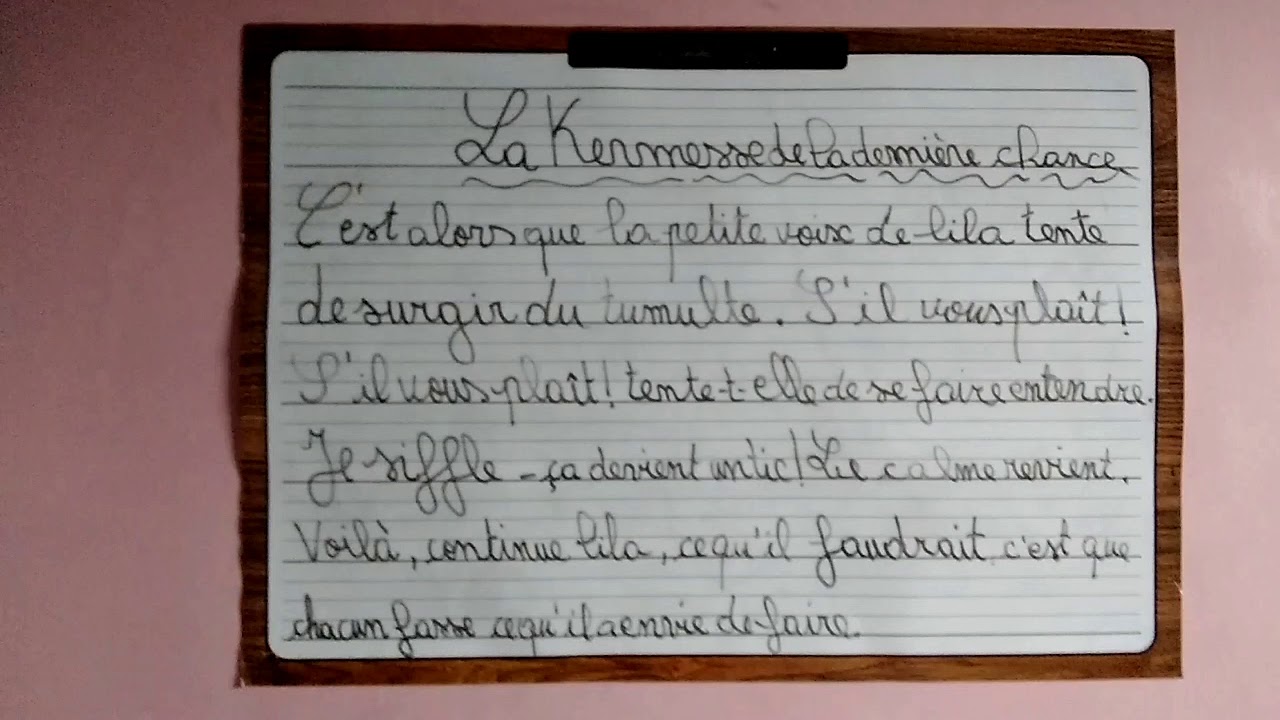 La Kermesse de la dernière chance
C'est alors que la petite voix de lila tente
de surgir du tumulte. S'il vous plaît!
S'il vous plaît! tente-t-elle de se faire entendre.
Je siffle - ça devient un tic! Le calme revient.
Voilà, continue lila, ce qu'il faudrait c'est que
chacun fasse ce qu'il a envie de faire.